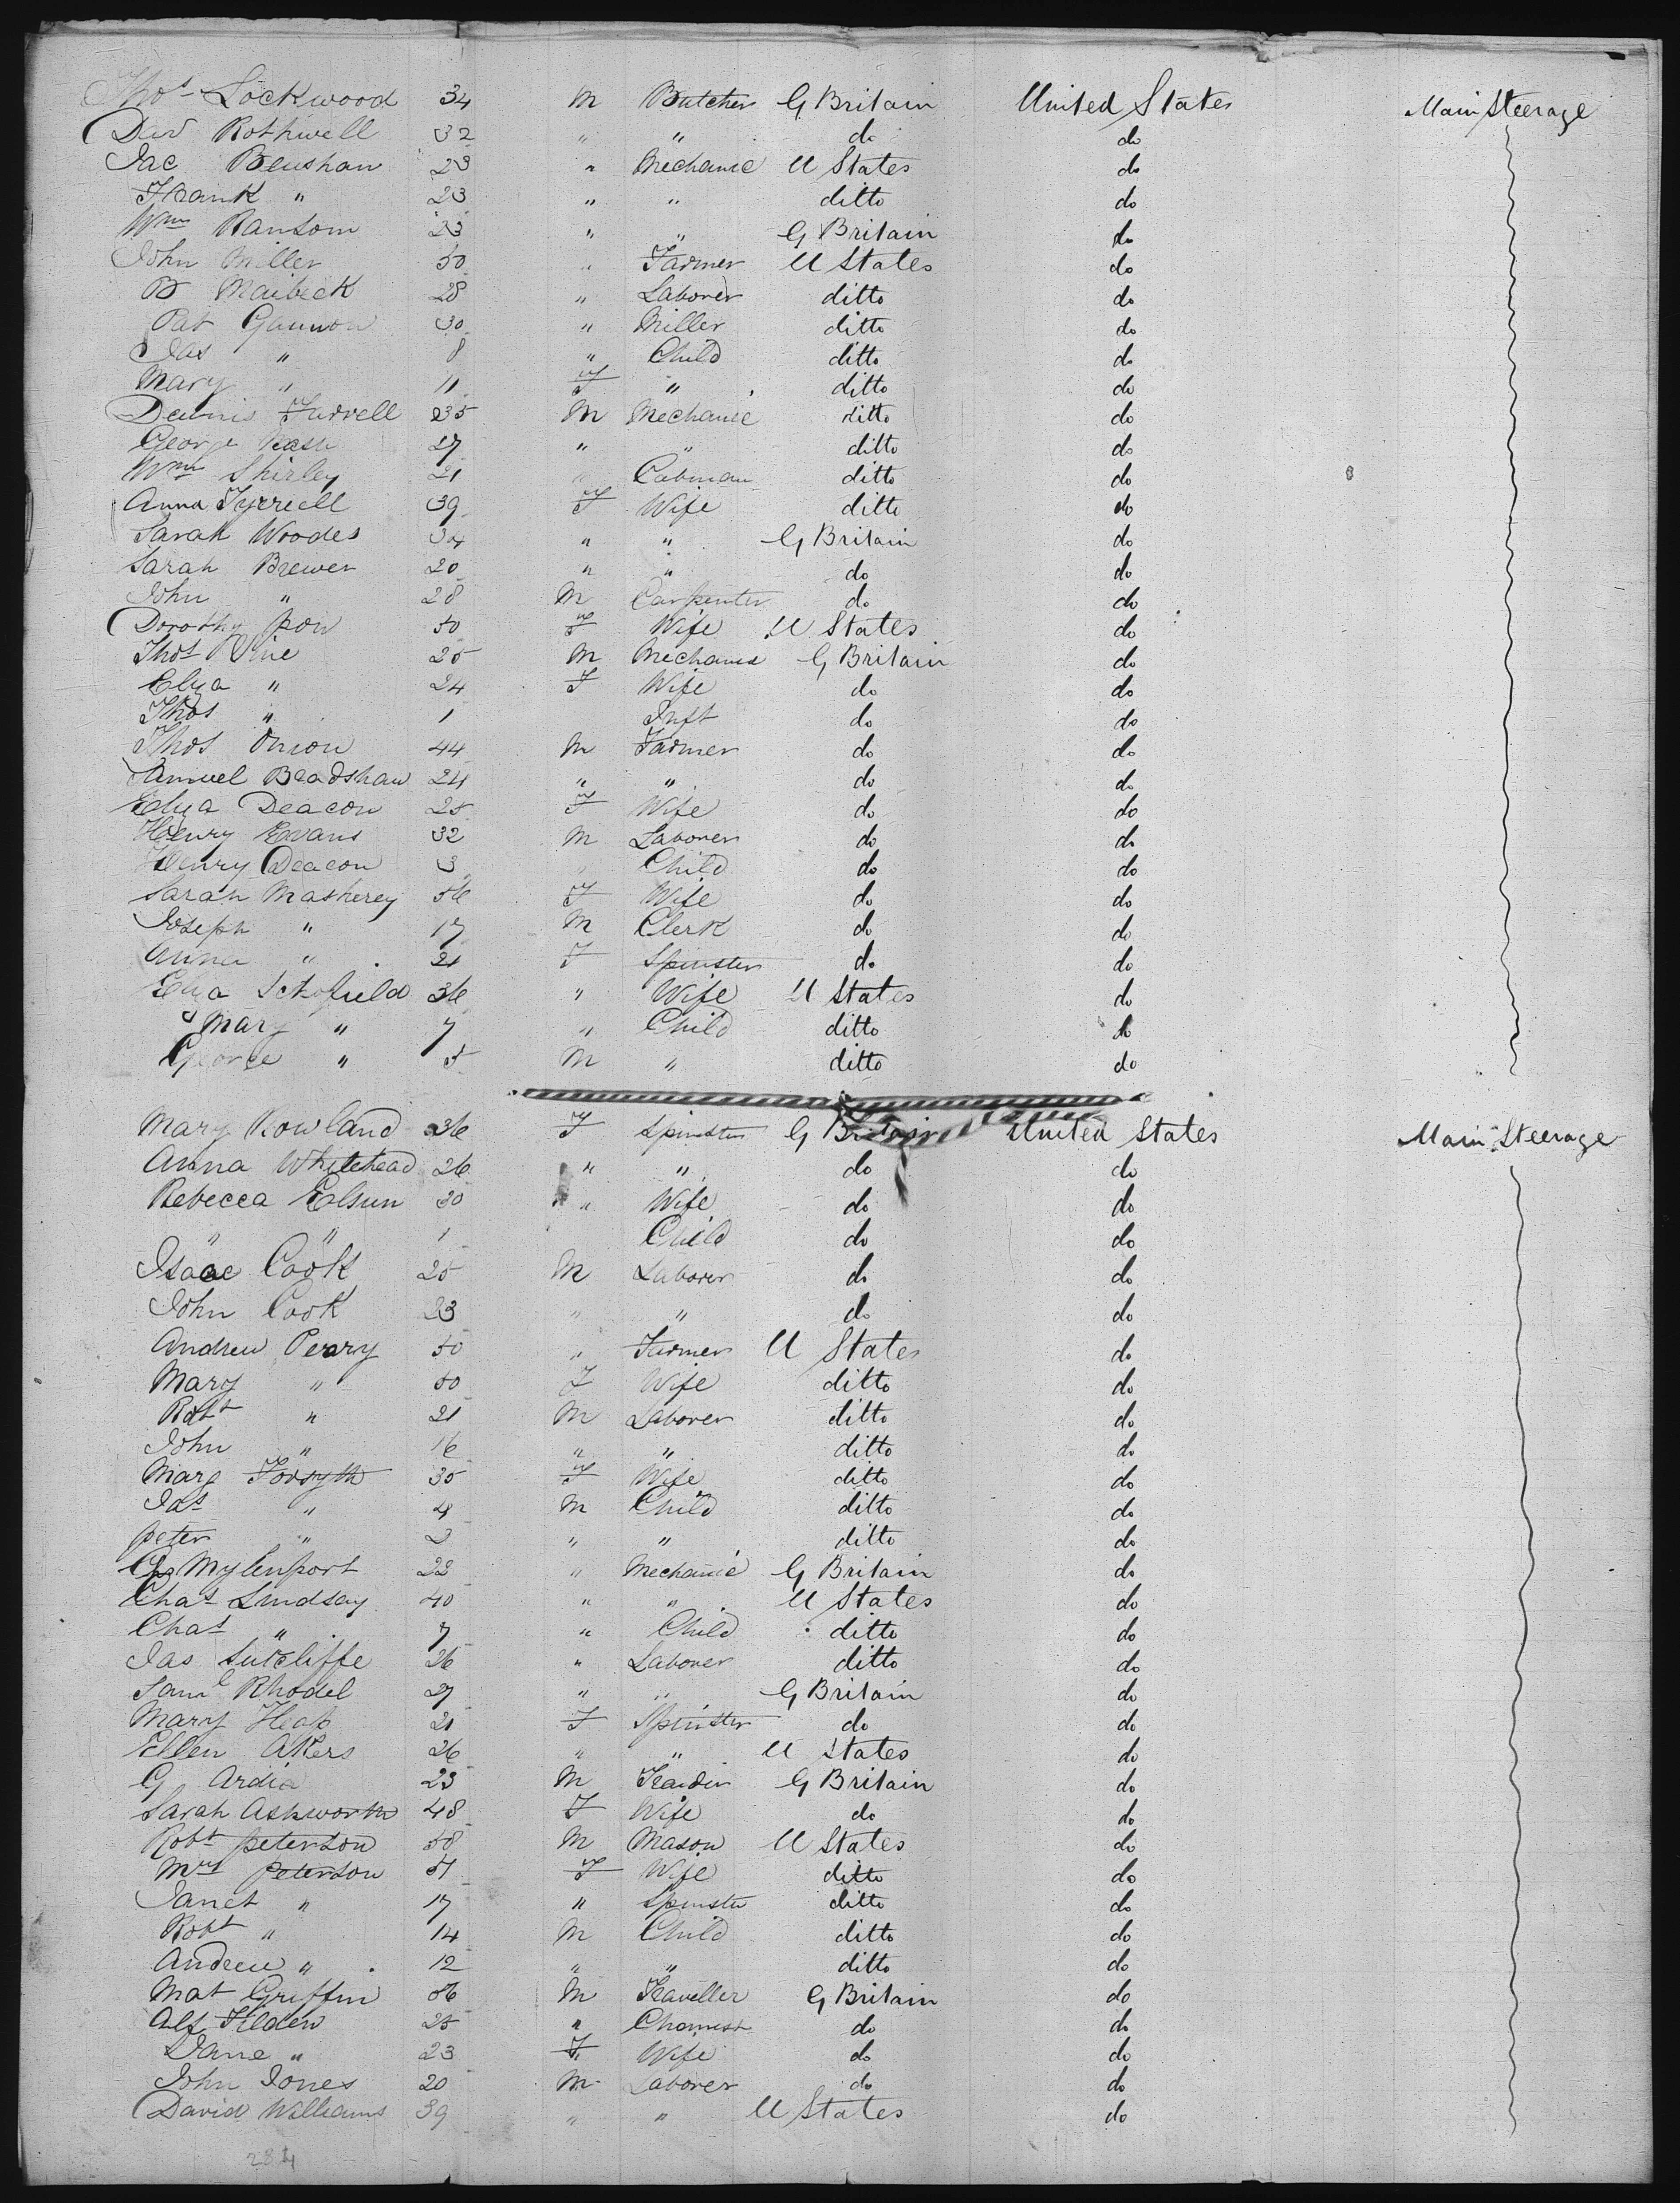 Thos Lockwood 34 M Butcher G Britain United States Main Steerage
Dav Rothwell 32 " " do do
Jac Benshaw 23 " Mechanic U States do
Frank " 23 " " ditto do
Wm Ransom 23 " " G Britain do
John Miller 50 " Farmer U States do
B Maibeck 28 " Laborer ditto do
Pat Gannon 30 " Miller ditto do
Jas " 8 " Child ditto do
Mary " 11 F " ditto do
Dennis Farrell 35 M Mechanic ditto do
George Nash 27 " " ditto do
Wm Shirley 21 " Cabman ditto do
Anna Tyrrell 39 F Wife ditto do
Sarah Woodes 34 " " G Britain do
Sarah Brewer 20 " " do do
John " 28 M Carpenter do do
Dorothy pow 50 F Wife U States do
Thos Vine 25 M Mechanic G Britain do
Elya " 24 F Wife do do
Thos " 1 Inft do do
Thos Onion 44 M Farmer do do
Samuel Bradshaw 24 " " do do
Elya Deacon 25 F Wife do do
Henry Evans 32 M Laborer do do
Henry Deacon 3 " Child do do
Sarah Maskerey 56 F Wife do do
Joseph " 17 M Clerk do do
Anna " 21 F Spinster do do
Elya Schofield 36 " Wife U States do
Mary " 7 " Child ditto do
George " 5 M " ditto do
Mary Rowland 36 F Spinster G Britain United States Main Steerage
Anna Whitehead 26 " " do do
Rebecca Elsun 30 " Wife do do
" " 1 Child do do
Isaac Cook 25 M Laborer do do
John Cook 23 " " do do
Andrew Perry 50 " Farmer U States do
Mary " 50 F Wife ditto do
Robt " 21 M Laborer ditto do
John " 16 " " ditto do
Marg Forsyth 35 F Wife ditto do
Jas " 4 M Child ditto do
peter " 2 " " ditto do
Mylenport 22 " Mechanic G Britain do
Chas Lindsay 40 " " U States do
Chas " 7 " Child ditto do
Jas Sutcliffe 26 " Laborer ditto do
Saml Rhodel 27 " " G Britain do
Mary Heap 21 F Spinster do do
Ellen Akers 26 " " U States do
G Ardia 23 M G Britain do
Sarah Ashworth 48 F Wife do do
Robt peterson 58 M Mason U States do
Mrs peterson 51 F Wife ditto do
Janet " 17 " Spinster ditto do
Robt " 14 M Child ditto do
Andrew " 12 " " ditto do
Mat Griffin 56 M Traveller G Britain do
Alf Tilden 25 " Chemist do do
Jane " 23 F Wife do do
John Jones 20 M Laborer do do
David Williams 39 " " U States do
284